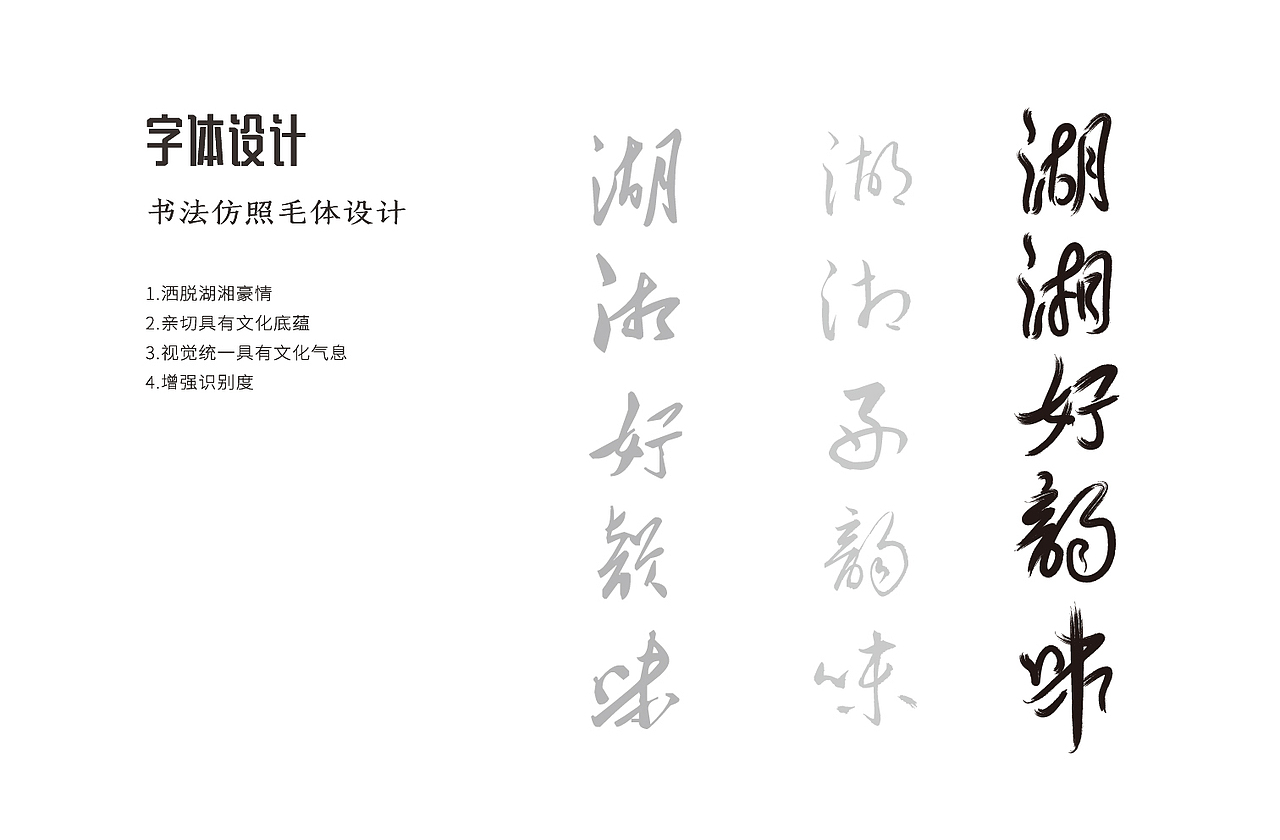 字体设计
书法仿照毛体设计
1.洒脱湖湘豪情
2.亲切具有文化底蕴
3.视觉统一具有文化气息
4.增强识别度
湖湘好韵味
湖湘好韵味
湖湘好韵味